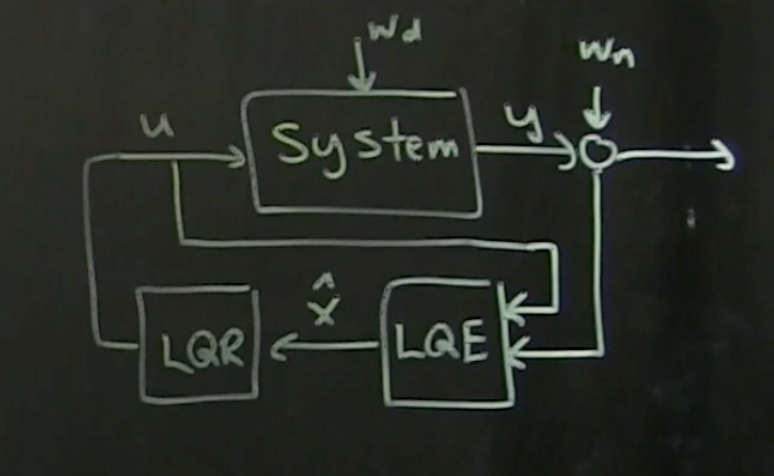 wd
wn
u
System
y
x̂
LQR
LQE